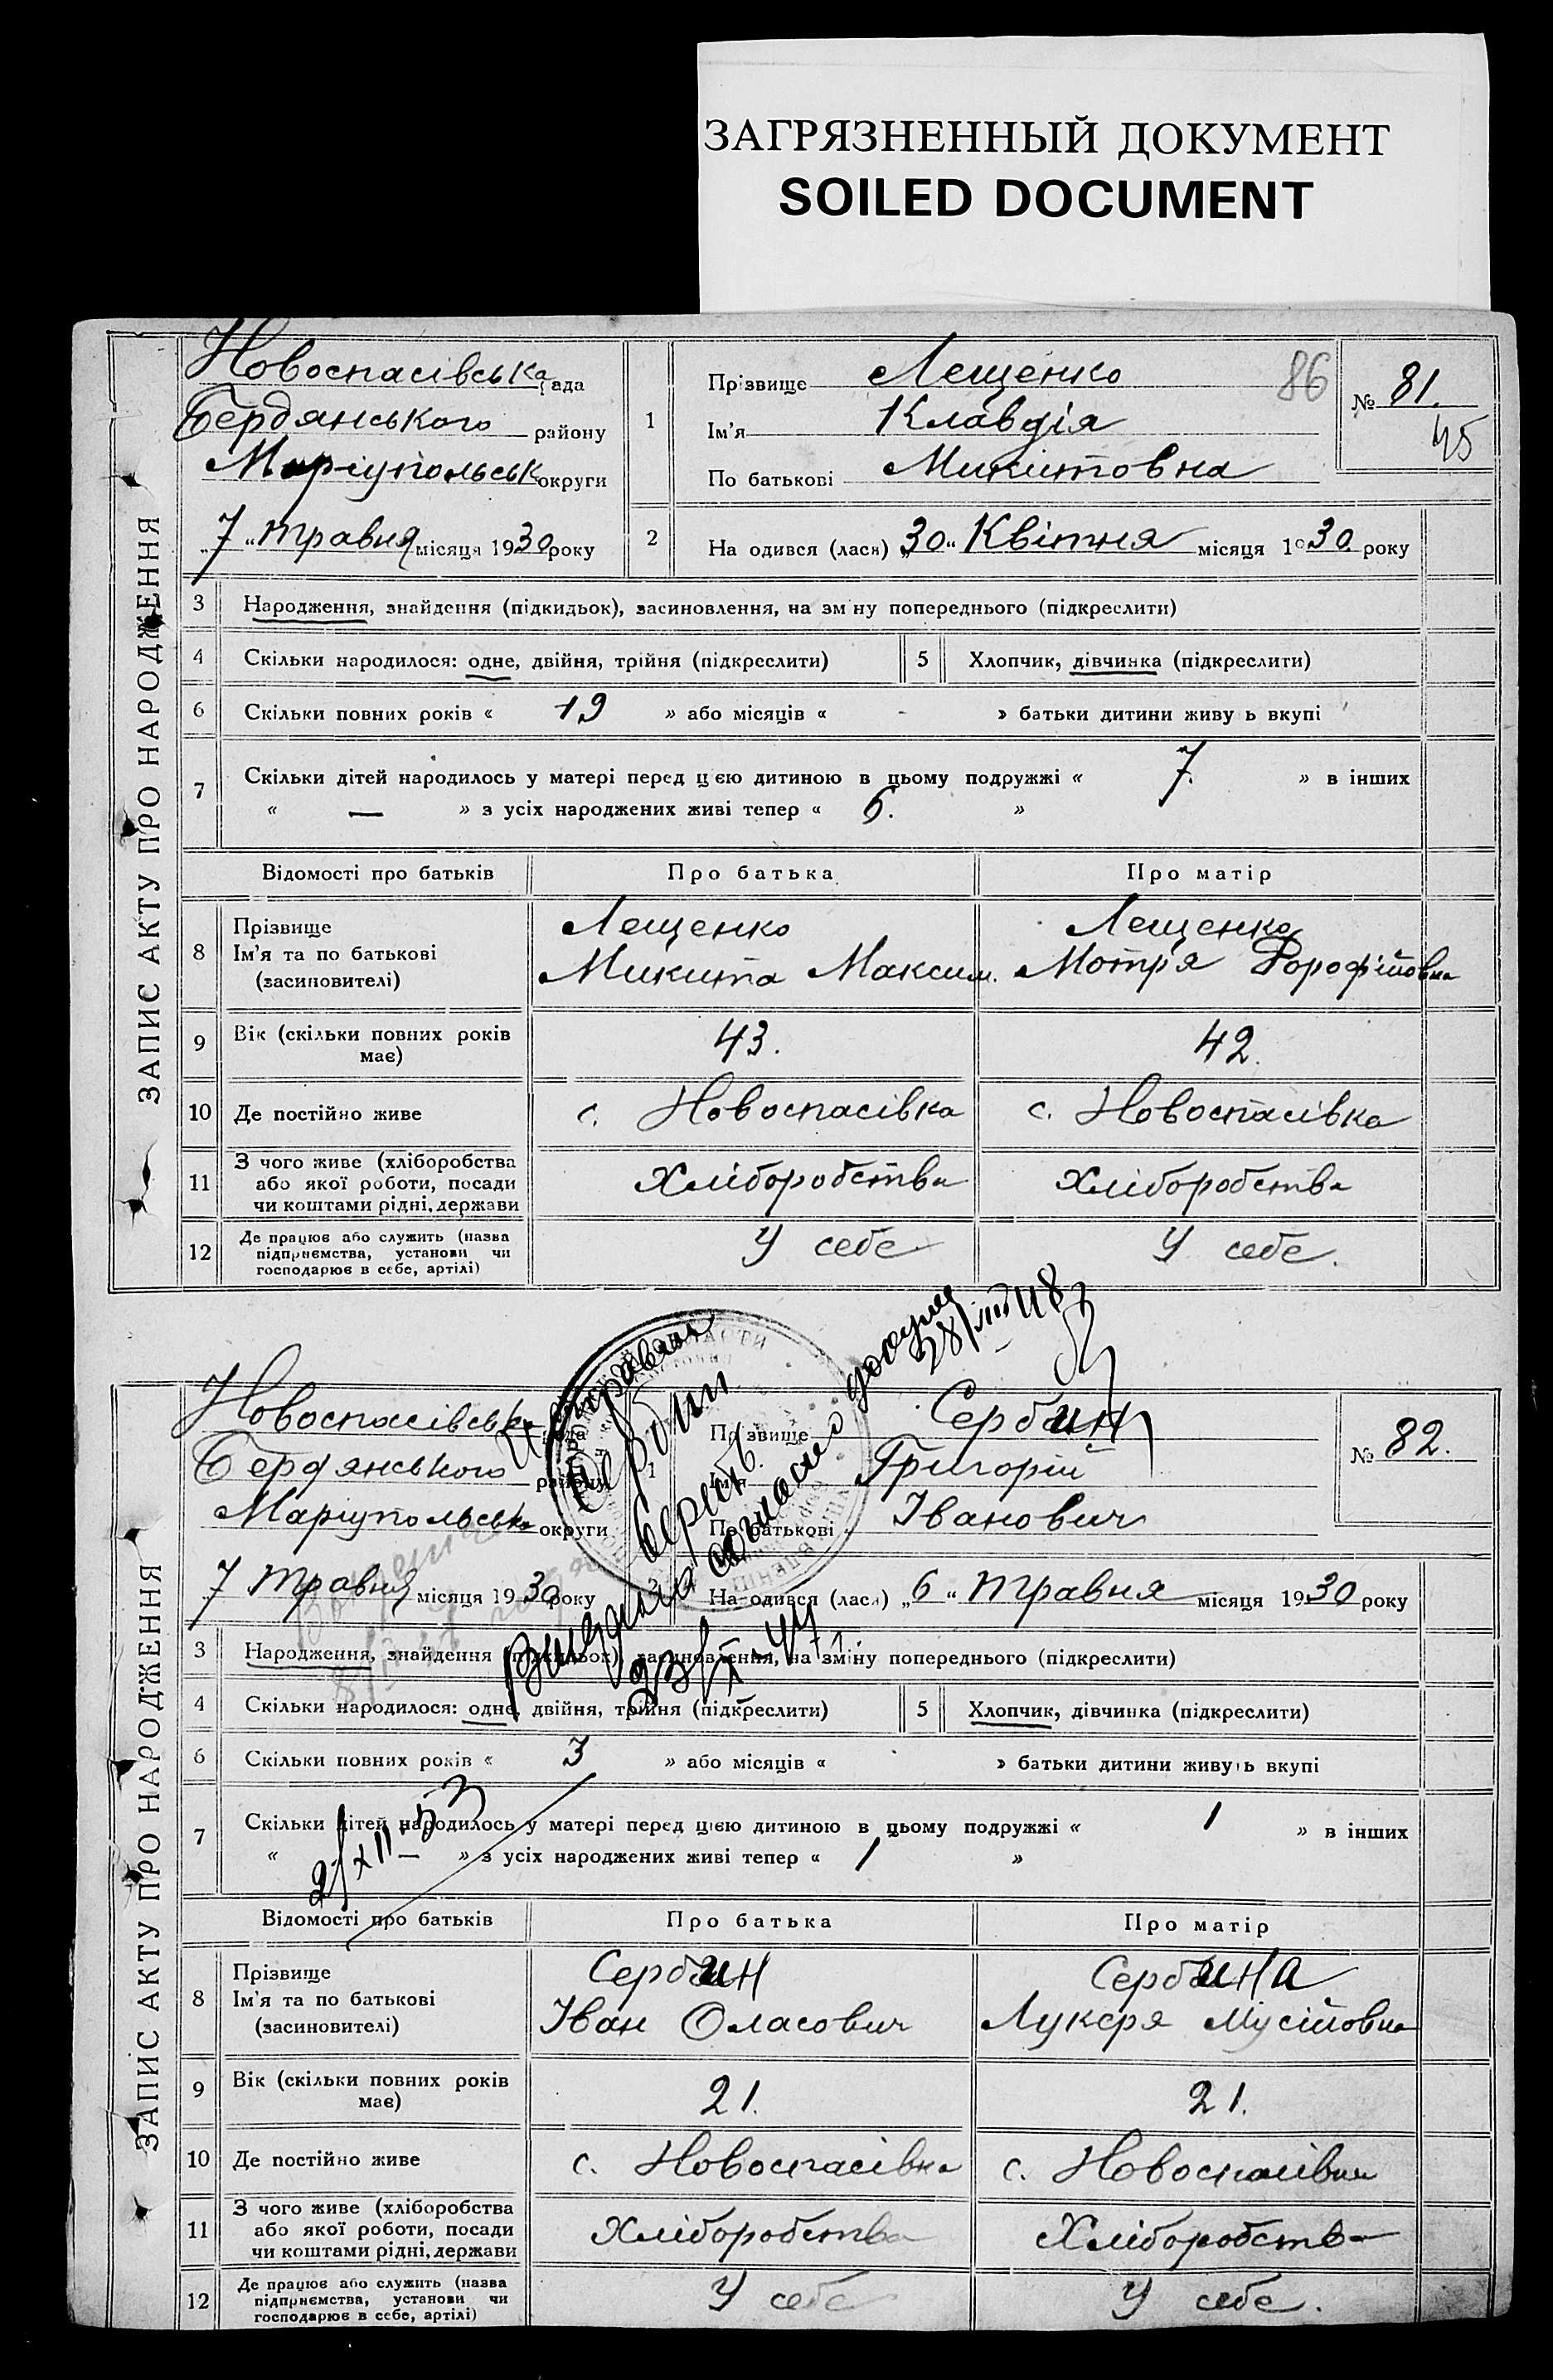 ЗАГРЯЗНЕННЫЙ ДОКУМЕНТ
SOILED DOCUMENT
ЗАПИС АКТУ ПРО НАРОДЖЕННЯ
Новоспасівська рада
Бердянського району
Маріупольськ округи
„7" травня місяця 1930 року
1
Прізвище Лещенко
86
Ім'я Клавдія
По батькові Микитовна
№ 81.
45
2
На одився (лася) „30" Квітня місяця 1930 року
3 Народження, знайдення (підкидьок), засиновлення, на зміну попереднього (підкреслити)
4 Скільки народилося: одне, двійня, трійня (підкреслити)
5 Хлопчик, дівчинка (підкреслити)
6 Скільки повних років « 19 » або місяців « - » батьки дитини живу ь вкупі
7 Скільки дітей народилось у матері перед цією дитиною в цьому подружжі « 7. » в інших
« — » з усіх народжених живі тепер « 6. »
Відомості про батьків Про батька Про матір
8 Прізвище Лещенко Лещенко
Ім'я та по батькові Микита Максим. Мотря Дорофійовна
(засиновителі)
9 Вік (скільки повних років має) 43. 42.
10 Де постійно живе с. Новоспасівка с. Новоспасівка
11 З чого живе (хліборобства
або якої роботи, посади Хліборобства Хліборобства
чи коштами рідні, держави
12 Де працює або служить (назва
підприємства, установи чи У себе У себе.
господарює в себе, артілі)
ЗАПИС АКТУ ПРО НАРОДЖЕННЯ
Новоспасівська рада
Бердянського району
Маріупольська округи
7 травня місяця 1930 року
1
Прізвище Сербин
Ім'я Григорій
По батькові Іванович
№ 82.
Исправлен
Сербин
верить.
согласно
28/VIII 48
23/X-47
2
На одився (лася) „6" травня місяця 1930 року
3 Народження, знайдення (підкидьок), засиновлення, на зміну попереднього (підкреслити)
4 Скільки народилося: одне, двійня, трійня (підкреслити)
5 Хлопчик, дівчинка (підкреслити)
6 Скільки повних років « 3 » або місяців « » батьки дитини живу ь вкупі
7 Скільки дітей народилось у матері перед цією дитиною в цьому подружжі « 1 » в інших
« » з усіх народжених живі тепер « 1 »
2/XII-53
Відомості про батьків Про батька Про матір
8 Прізвище Сербин Сербина
Ім'я та по батькові Іван Оласович Лукеря Мусійовна
(засиновителі)
9 Вік (скільки повних років має) 21. 21.
10 Де постійно живе с. Новоспасівка с. Новоспасівка
11 З чого живе (хліборобства
або якої роботи, посади Хліборобства Хліборобства
чи коштами рідні, держави
12 Де працює або служить (назва
підприємства, установи чи У себе У себе.
господарює в себе, артілі)